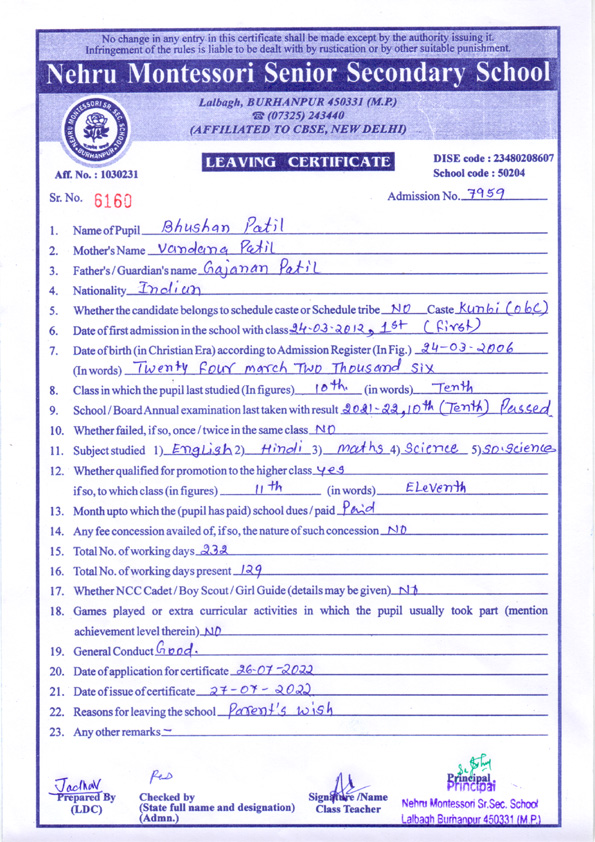 No change in any entry in this certificate shall be made except by the authority issuing it.
Infringement of the rules is liable to be dealt with by rustication or by other suitable punishment.
Nehru Montessori Senior Secondary School
Lalbagh, BURHANPUR 450331 (M.P.)
☎ (07325) 243440
(AFFILIATED TO CBSE, NEW DELHI)
NEHRU MONTESSORI SR. SEC. SCHOOL
BURHANPUR
Aff. No. : 1030231
LEAVING CERTIFICATE
DISE code : 23480208607
School code : 50204
Sr. No. 6160
Admission No. 7959
1. Name of Pupil Bhushan Patil
2. Mother's Name Vandana Patil
3. Father's / Guardian's name Gajanan Patil
4. Nationality Indian
5. Whether the candidate belongs to schedule caste or Schedule tribe NO Caste Kunbi (obc)
6. Date of first admission in the school with class 24-03-2012, 1st (first)
7. Date of birth (in Christian Era) according to Admission Register (In Fig.) 24-03-2006
(In words) Twenty four march Two Thousand Six
8. Class in which the pupil last studied (In figures) 10th. (in words) Tenth
9. School / Board Annual examination last taken with result 2021-22, 10th (Tenth) Passed
10. Whether failed, if so, once / twice in the same class NO
11. Subject studied 1) English 2) Hindi 3) maths 4) Science 5) SO. Science
12. Whether qualified for promotion to the higher class yes
if so, to which class (in figures) 11th (in words) Eleventh
13. Month upto which the (pupil has paid) school dues / paid Paid
14. Any fee concession availed of, if so, the nature of such concession NO
15. Total No. of working days 232
16. Total No. of working days present 129
17. Whether NCC Cadet / Boy Scout / Girl Guide (details may be given) NO
18. Games played or extra curricular activities in which the pupil usually took part (mention
achievement level therein) NO
19. General Conduct Good.
20. Date of application for certificate 26-07-2022
21. Date of issue of certificate 27-07-2022
22. Reasons for leaving the school Parent's wish
23. Any other remarks –
Jadhav
Prepared By
(LDC)
Checked by
(State full name and designation)
(Admn.)
Signature /Name
Class Teacher
Principal
Principal
Nehru Montessori Sr.Sec. School
Lalbagh Burhanpur 450331 (M.P.)